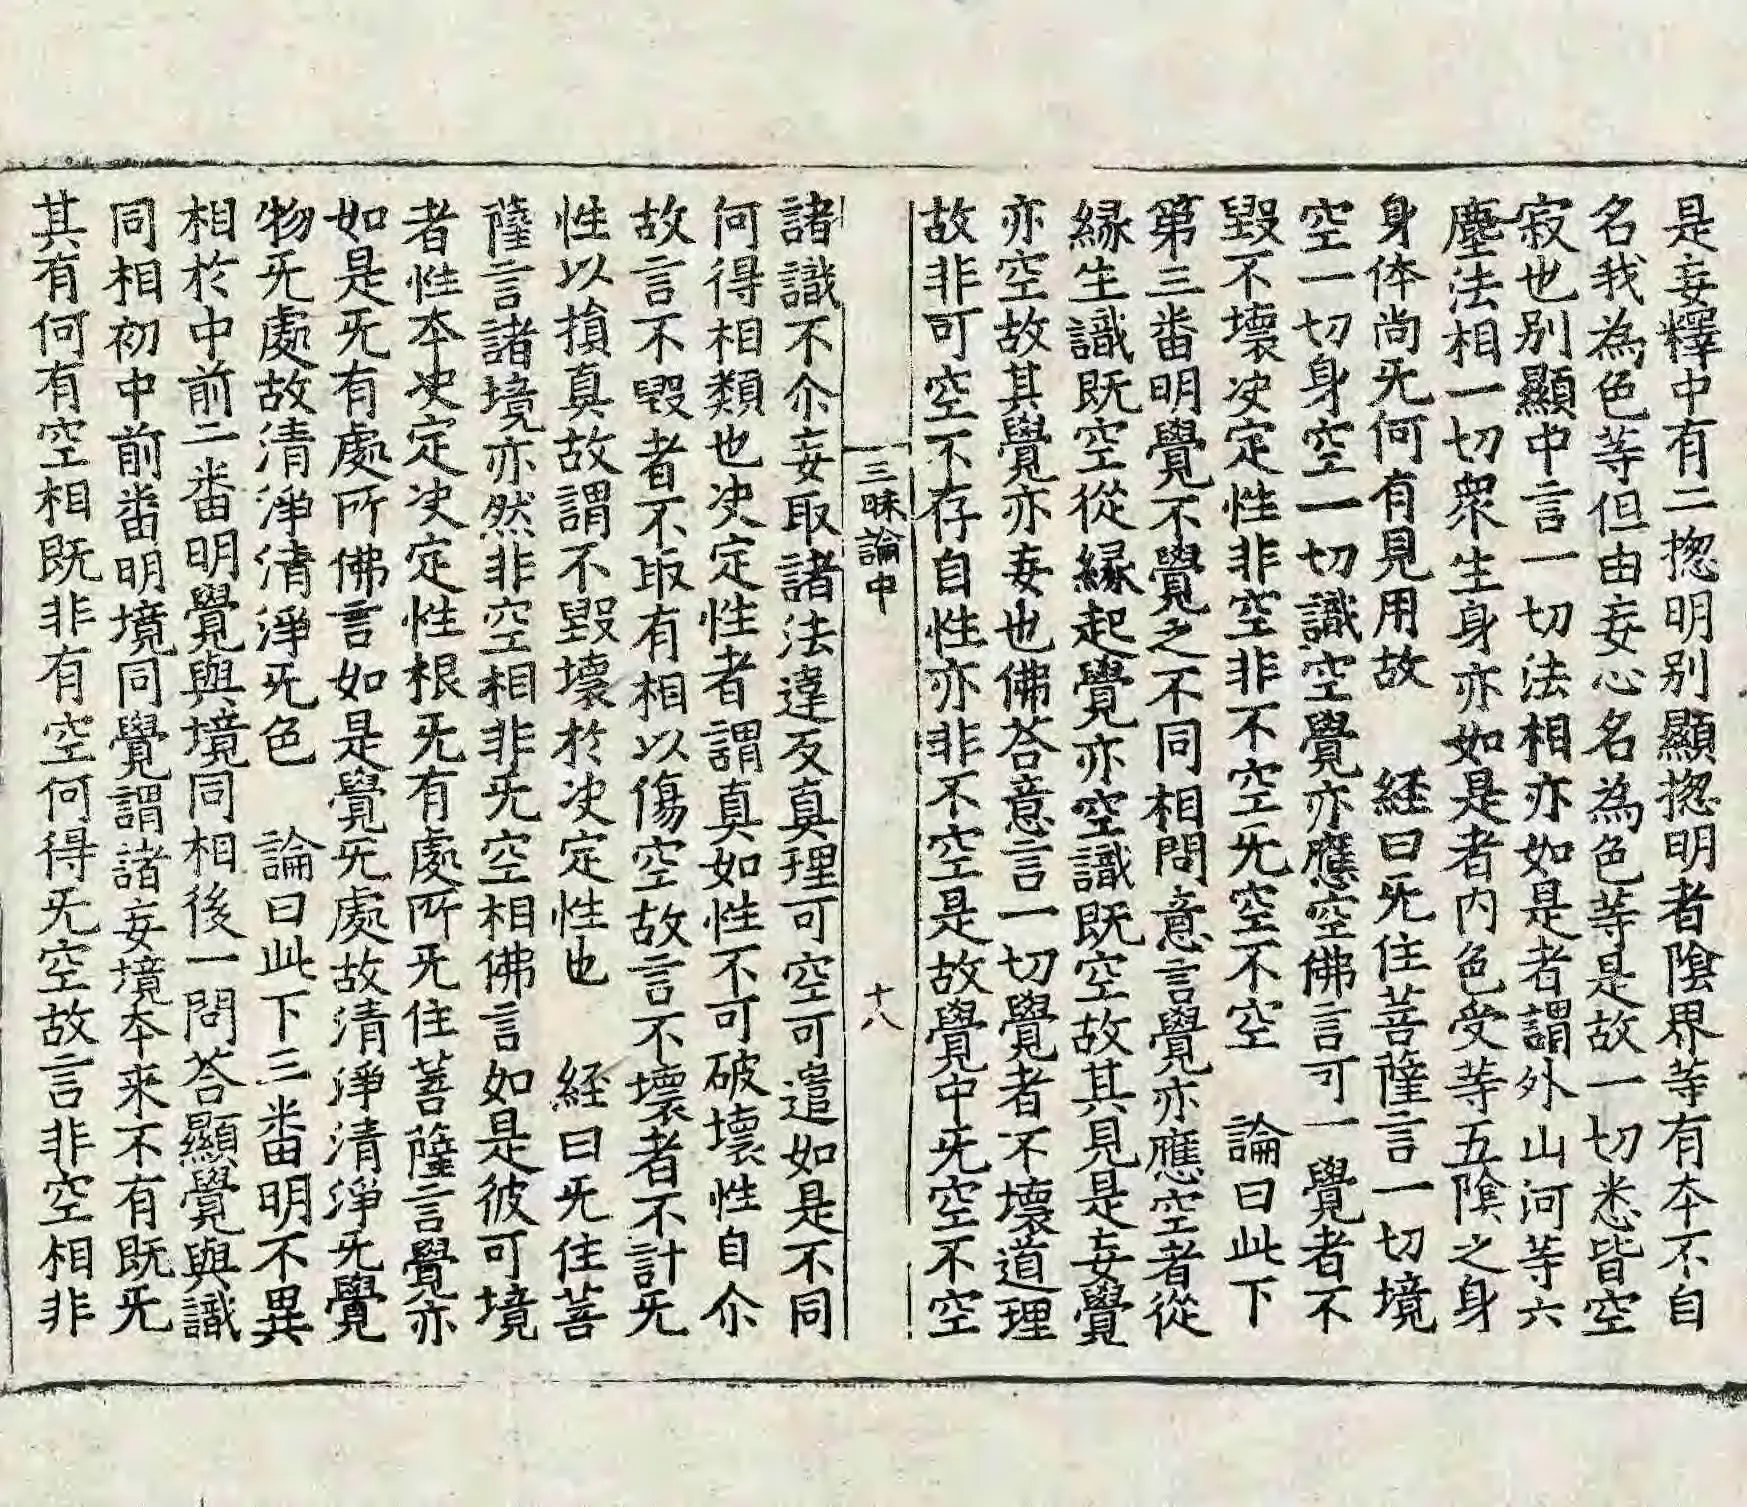 是妄釋中有二揔明别顯揔明者陰界等有夲不自
名我為色等但由妄心名為色等是故一切悉皆空
寂也别顯中言一切法相亦如是者謂外山河等六
塵法相一切衆生身亦如是者内色受等五陰之身
身体尚旡何有見用故　経曰旡住菩薩言一切境
空一切身空一切識空覺亦應空佛言可一覺者不
毀不壞决定性非空非不空旡空不空　論曰此下
第三畨明覺不覺之不同相問意言覺亦應空者從
縁生識既空從縁起覺亦空識既空故其見是妄覺
亦空故其覺亦妄也佛荅意言一切覺者不壞道理
故非可空不存自性亦非不空是故覺中旡空不空
三昧論中　十八
諸識不尒妄取諸法違反真理可空可遣如是不同
何得相類也决定性者謂真如性不可破壞性自尒
故言不毀者不取有相以傷空故言不壞者不計旡
性以損真故謂不毀壞於决定性也　経曰旡住菩
薩言諸境亦然非空相非旡空相佛言如是彼可境
者性夲决定决定性根旡有處所旡住菩薩言覺亦
如是旡有處所佛言如是覺旡處故清淨清淨旡覺
物旡處故清淨清淨旡色　論曰此下三畨明不異
相於中前二畨明覺與境同相後一問荅顯覺與識
同相初中前畨明境同覺謂諸妄境夲来不有既旡
其有何有空相既非有空何得旡空故言非空相非